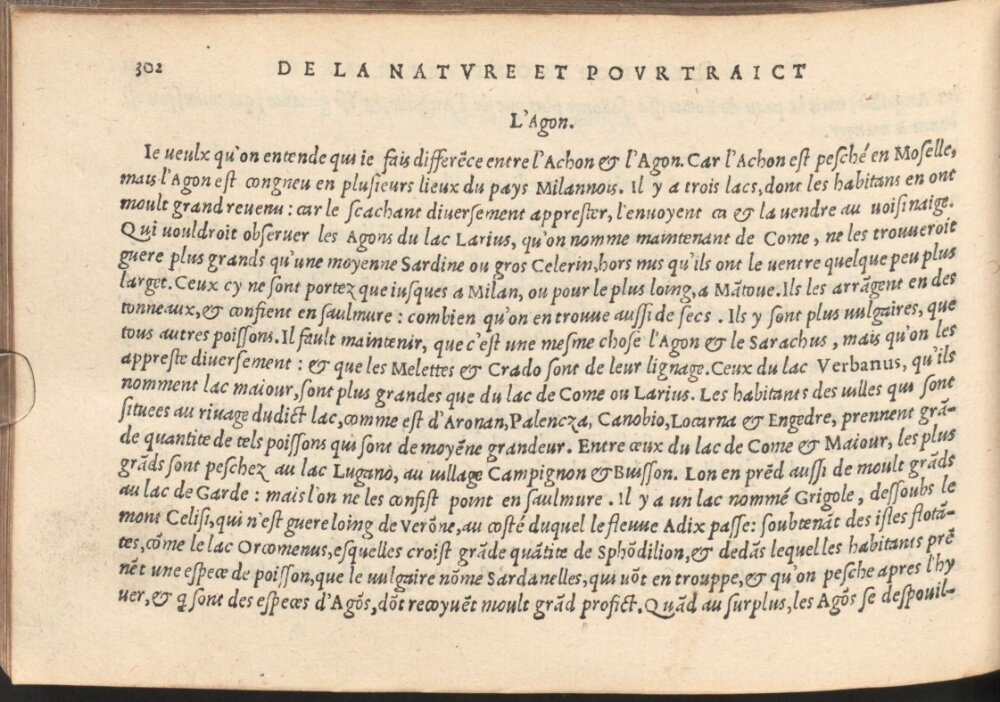 302 DE LA NATVRE ET POVRTRAICT
L'Agon.
Ie veulx qu'on entende qui ie fais differẽce entre l'Achon & l'Agon. Car l'Achon est pesché en Moselle,
mais l'Agon est congneu en plusieurs lieux du pays Milannois. Il y a trois lacs, dont les habitans en ont
moult grand revenu : car le scachant diversement apprester, l'envoyent ca & la vendre au voisinaige.
Qui vouldroit observer les Agons du lac Larius, qu'on nomme maintenant de Come, ne les trouveroit
guere plus grands qu'une moyenne Sardine ou gros Celerin, hors mis qu'ils ont le ventre quelque peu plus
larget. Ceux cy ne sont portez que iusques a Milan, ou pour le plus loing, a Mãtoue. Ils les arrãgent en des
tonneaux, & confient en saulmure : combien qu'on en trouve aussi de secs. Ils y sont plus vulgaires, que
tous autres poissons. Il fault maintenir, que c'est une mesme chose l'Agon & le Sarachus, mais qu'on les
appreste diversement : & que les Melettes & Crado sont de leur lignage. Ceux du lac Verbanus, qu'ils
nomment lac maiour, sont plus grandes que du lac de Come ou Larius. Les habitants des villes qui sont
situees au rivage dudict lac, comme est d'Aronan, Palencza, Canobio, Locarna & Engedre, prennent grã-
de quantite de tels poissons qui sont de moyẽne grandeur. Entre ceux du lac de Come & Maiour, les plus
grãds sont peschez au lac Lugano, au village Campignon & Buisson. Lon en prẽd aussi de moult grãds
au lac de Garde : mais l'on ne les confist point en saulmure. Il y a un lac nommé Grigole, dessoubs le
mont Celisi, qui n'est guere loing de Verõne, au costé duquel le fleuve Adix passe: soubtenãt des isles flotã-
tes, cõme le lac Orcomenus, esquelles croist grãde quãtite de Sphõdilion, & dedãs lequel les habitants prẽ
nẽt une espece de poisson, que le vulgaire nõme Sardanelles, qui võt en trouppe, & qu'on pesche apres l'hy
ver, & q̃ sont des especes d'Agõs, dõt reçoyuẽt moult grãd profict. Quãd au surplus, les Agõs se despouil-